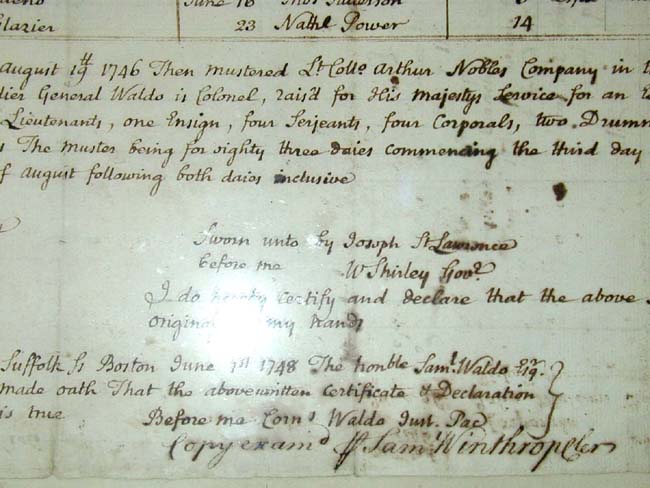 June 16 Thos
Glazier 23 Nathl Power 14
August 19th 1746 Then mustered Lt Collo. Arthur Nobles Company in
General Waldo is Colonel, rais'd for His Majestys Service for an
Lieutenants, one Ensign, four Serjeants, four Corporals, two Drumm
The Muster being for eighty three daies commencing the third day
of August following both daies inclusive
Sworn unto by Joseph St Lawrence
before me W Shirley Govr.
I do hereby certify and declare that the above
original my hand
Suffolk Ss Boston June 1st 1748 The honble Saml. Waldo Esqr.
made oath That the abovewritten Certificate & Declaration
is true Before me Corns Waldo Just. Pac
Copy examd Saml. Winthrop Cler